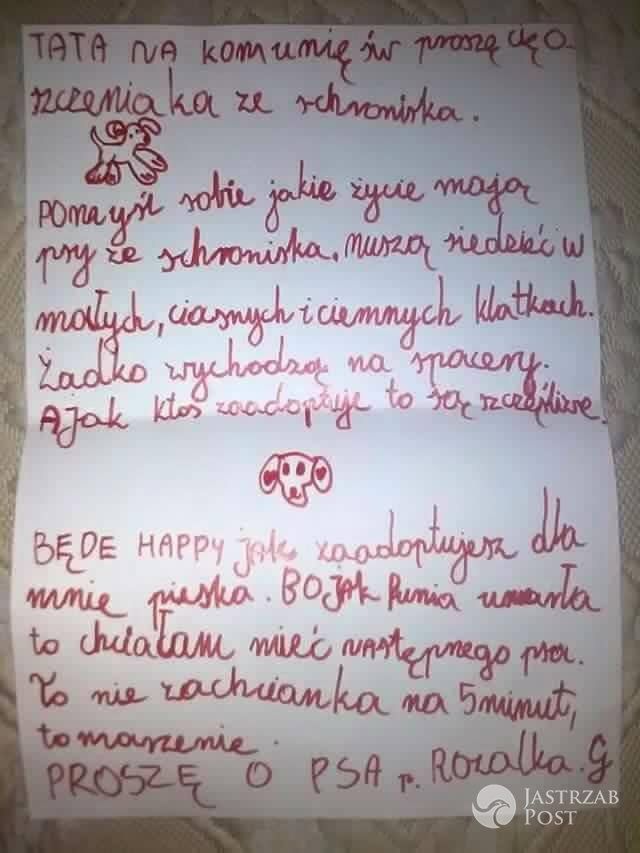 TATA NA komunię św proszę cię O
szczeniaka ze schroniska.
POMYŚl sobie jakie życie mają
psy ze schroniska. Muszą siedzieć w
małych, ciasnych i ciemnych klatkach.
Żadko wychodzą na spacery.
A jak ktoś zaadoptuje to są szczęśliwe.
BĘDE HAPPY jak zaadoptujesz dla
mnie pieska. BO jAk Punia umarła
to chciałam mieć NASTępnego psa.
To nie zachcianka na 5 minut,
to marzenie.
PROSZĘ O PSA p. Rozalka. G
JASTRZAB
POST